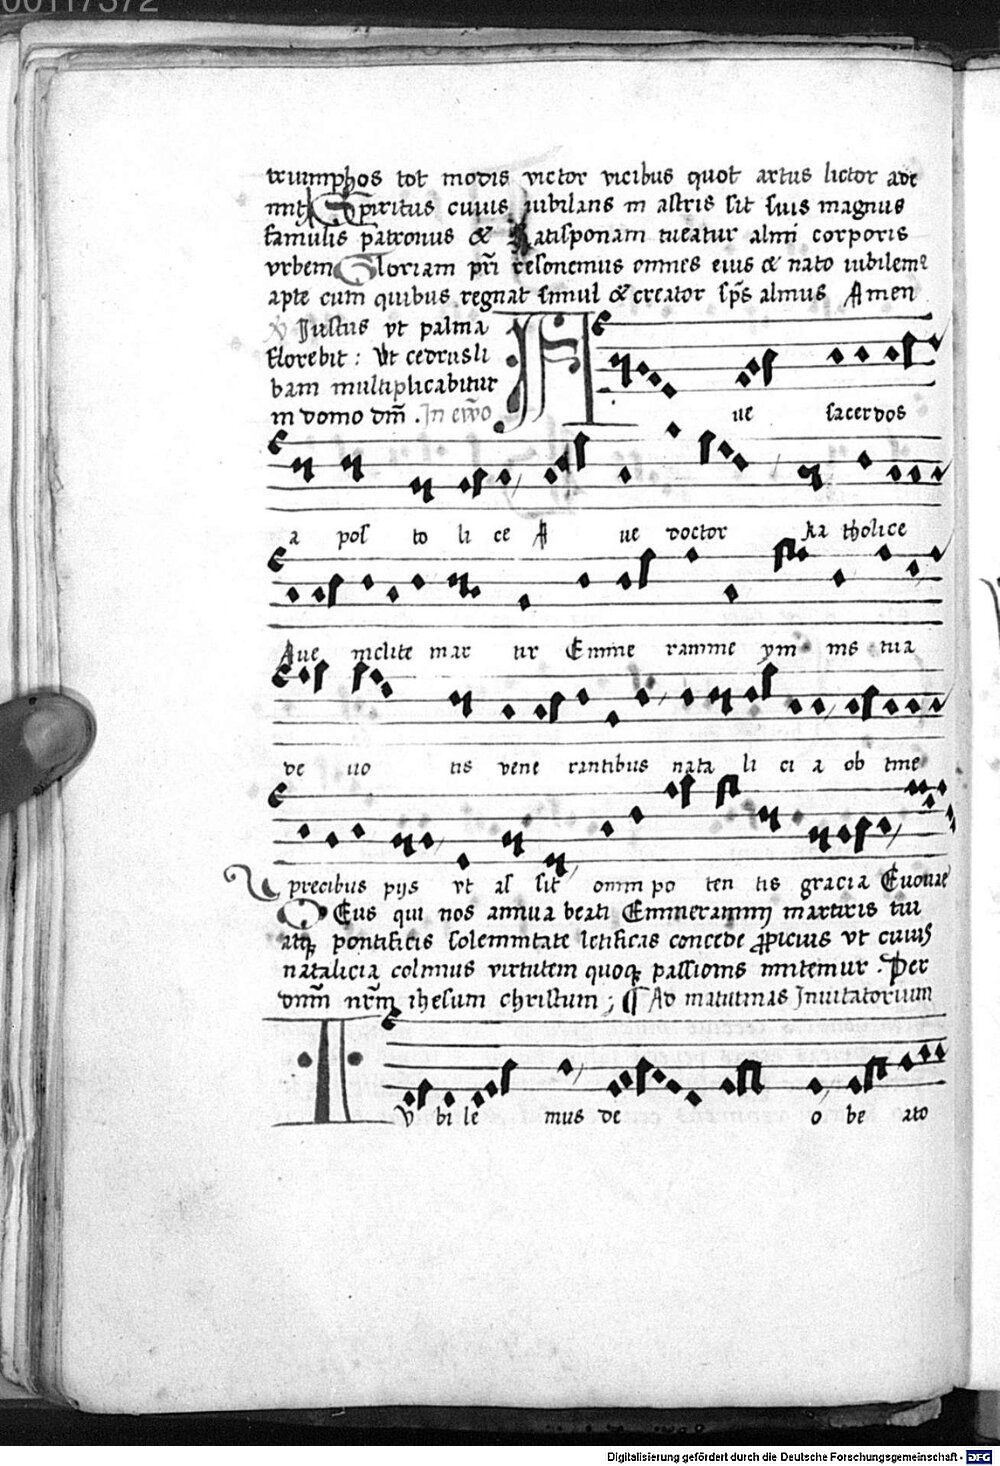 00117372
triumphos tot modis victor vicibus quot artus lictor ade
mit Spiritus cuius iubilans in astris sit suis magnus
famulis patronus & Ratisponam tueatur almi corporis
vrbem Gloriam pr̄i resonemus omnes eius & nato iubilem9
apte cum quibus regnat simul & creator sp̄s almus Amen
V Justus vt palma
florebit : Vt cedrus li
bam multiplicabitur
in domo dm̄ . In ew̄o
A ue sacerdos
a pos to li ce A ue doctor ka tholice
Aue inclite mar tir Emme ramme ym nis tua
de uo tis vene rantibus nata li ci a ob tine
V precibus pijs vt as sit omni po ten tis gracia Euouae
DEus qui nos annua beati Emmerammj martiris tui
atq pontificis solemnitate letificas concede ꝓpicius vt cuius
natalicia colimus virtutem quoq passionis imitemur . Per
dn̄m nr̄m ihesum christum ; ¶ Ad matutinas Jnuitatorium
I V bi le mus de o be ato
Digitalisierung gefördert durch die Deutsche Forschungsgemeinschaft - DFG